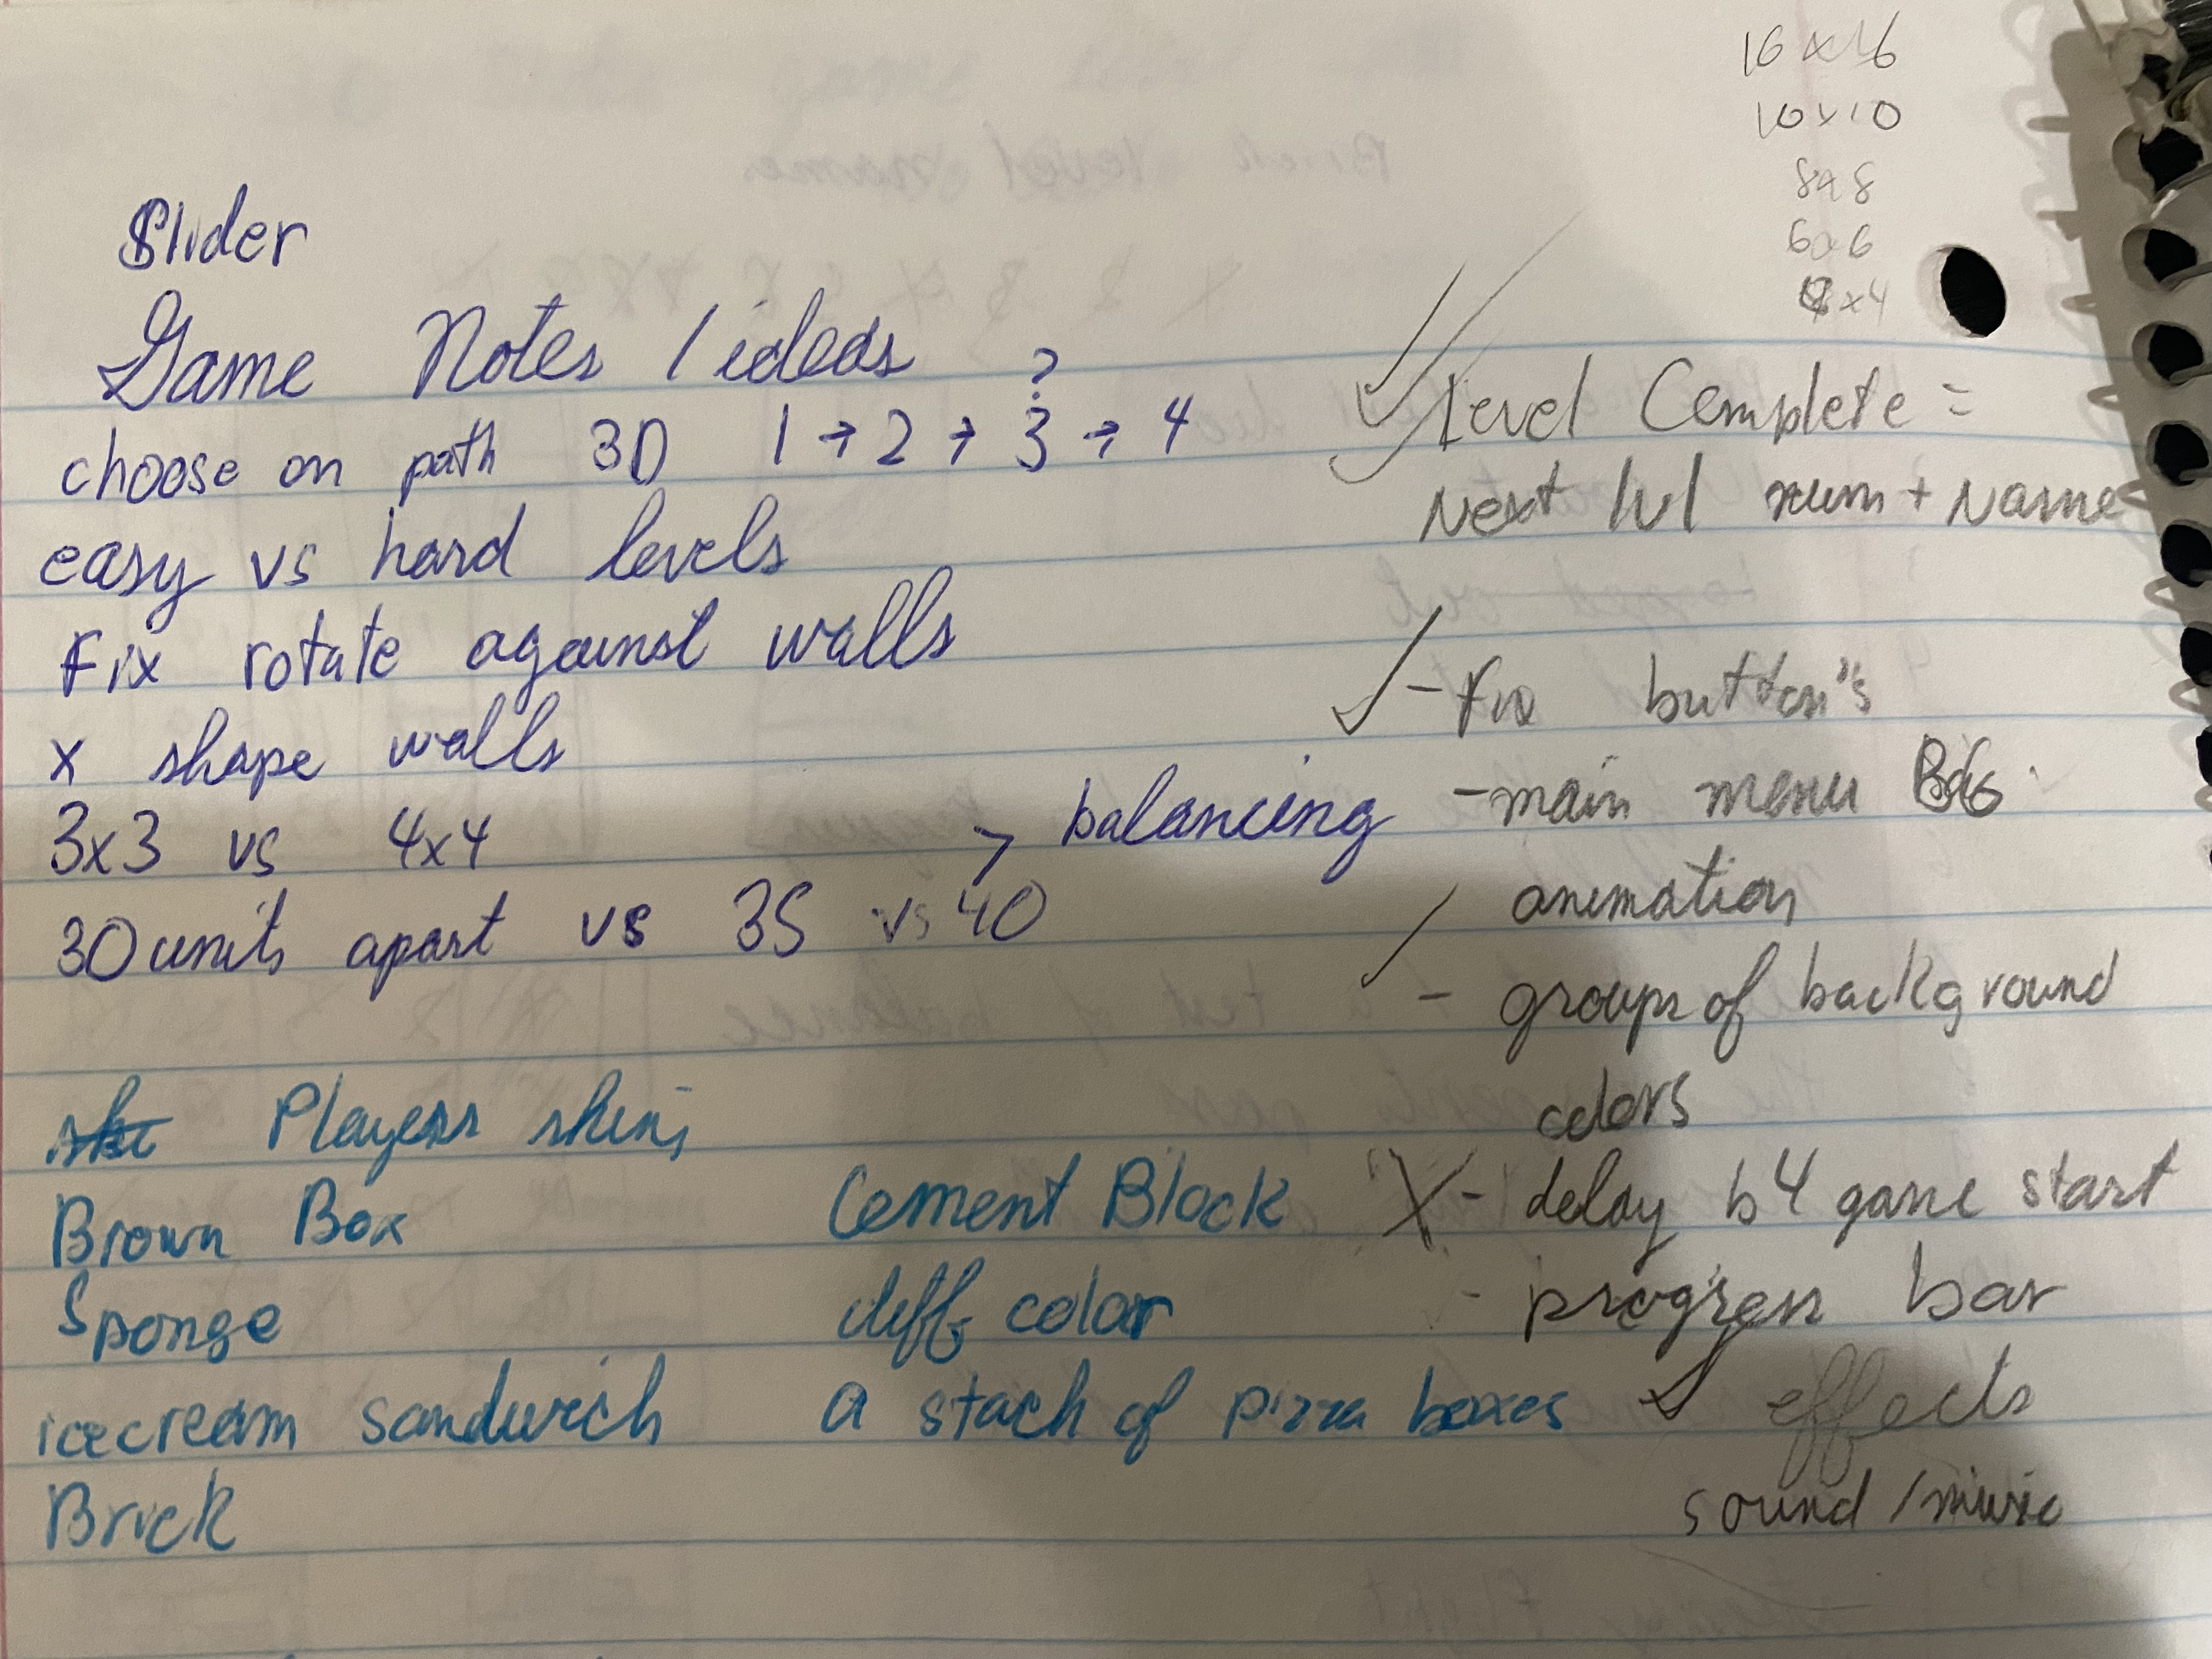 16 x 16
10x10
8x8
6x6
4x4
Slider
Game Notes / ideas
choose on path 3D 1 → 2 → 3 → 4
?
easy vs hard levels
Fix rotate against walls
x shape walls
3x3 vs 4x4
> balancing
30 units apart vs 35 vs 40
Players skins
Brown Box
Sponge
icecream sandwich
Brick
Cement Block
diff color
a stack of pizza boxes
✓ Level Complete =
✓ Next lvl num + Name
✓ - Fix button's
- main menu BG
animation
✓ - groups of background
colors
X - delay b4 game start
- progress bar
✓ effects
sound / music